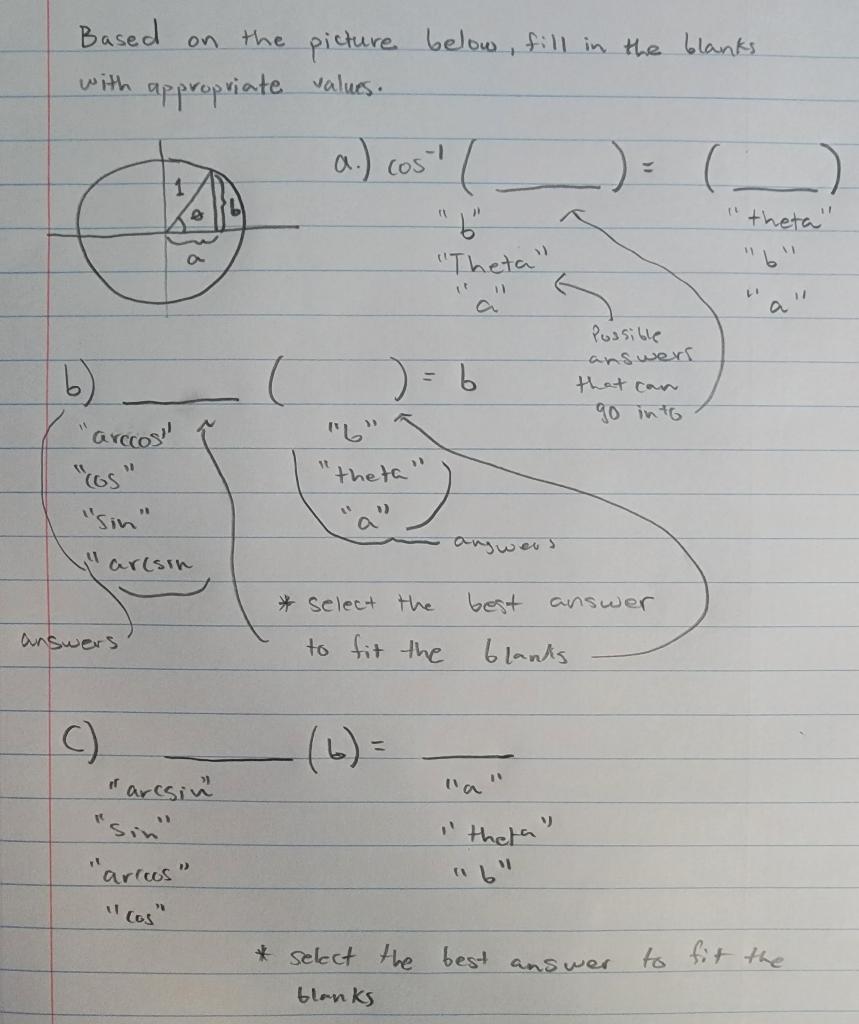 Based on the picture below, fill in the blanks
with appropriate values.
1
θ
b
a
a.) cos⁻¹ ( ______ ) = ( _____ )
"b" "theta"
"Theta" "b"
"a" "a"
Possible
answers
that can
go into
b) ______ ( ) = b
"arccos" "b"
"cos" "theta"
"sin" "a"
"arcsin
answers
answers
* select the best answer
to fit the blanks
c) ______ (b) = _____
"arcsin" "a"
"sin" "theta"
"arccos" "b"
"cos"
* select the best answer to fit the
blanks